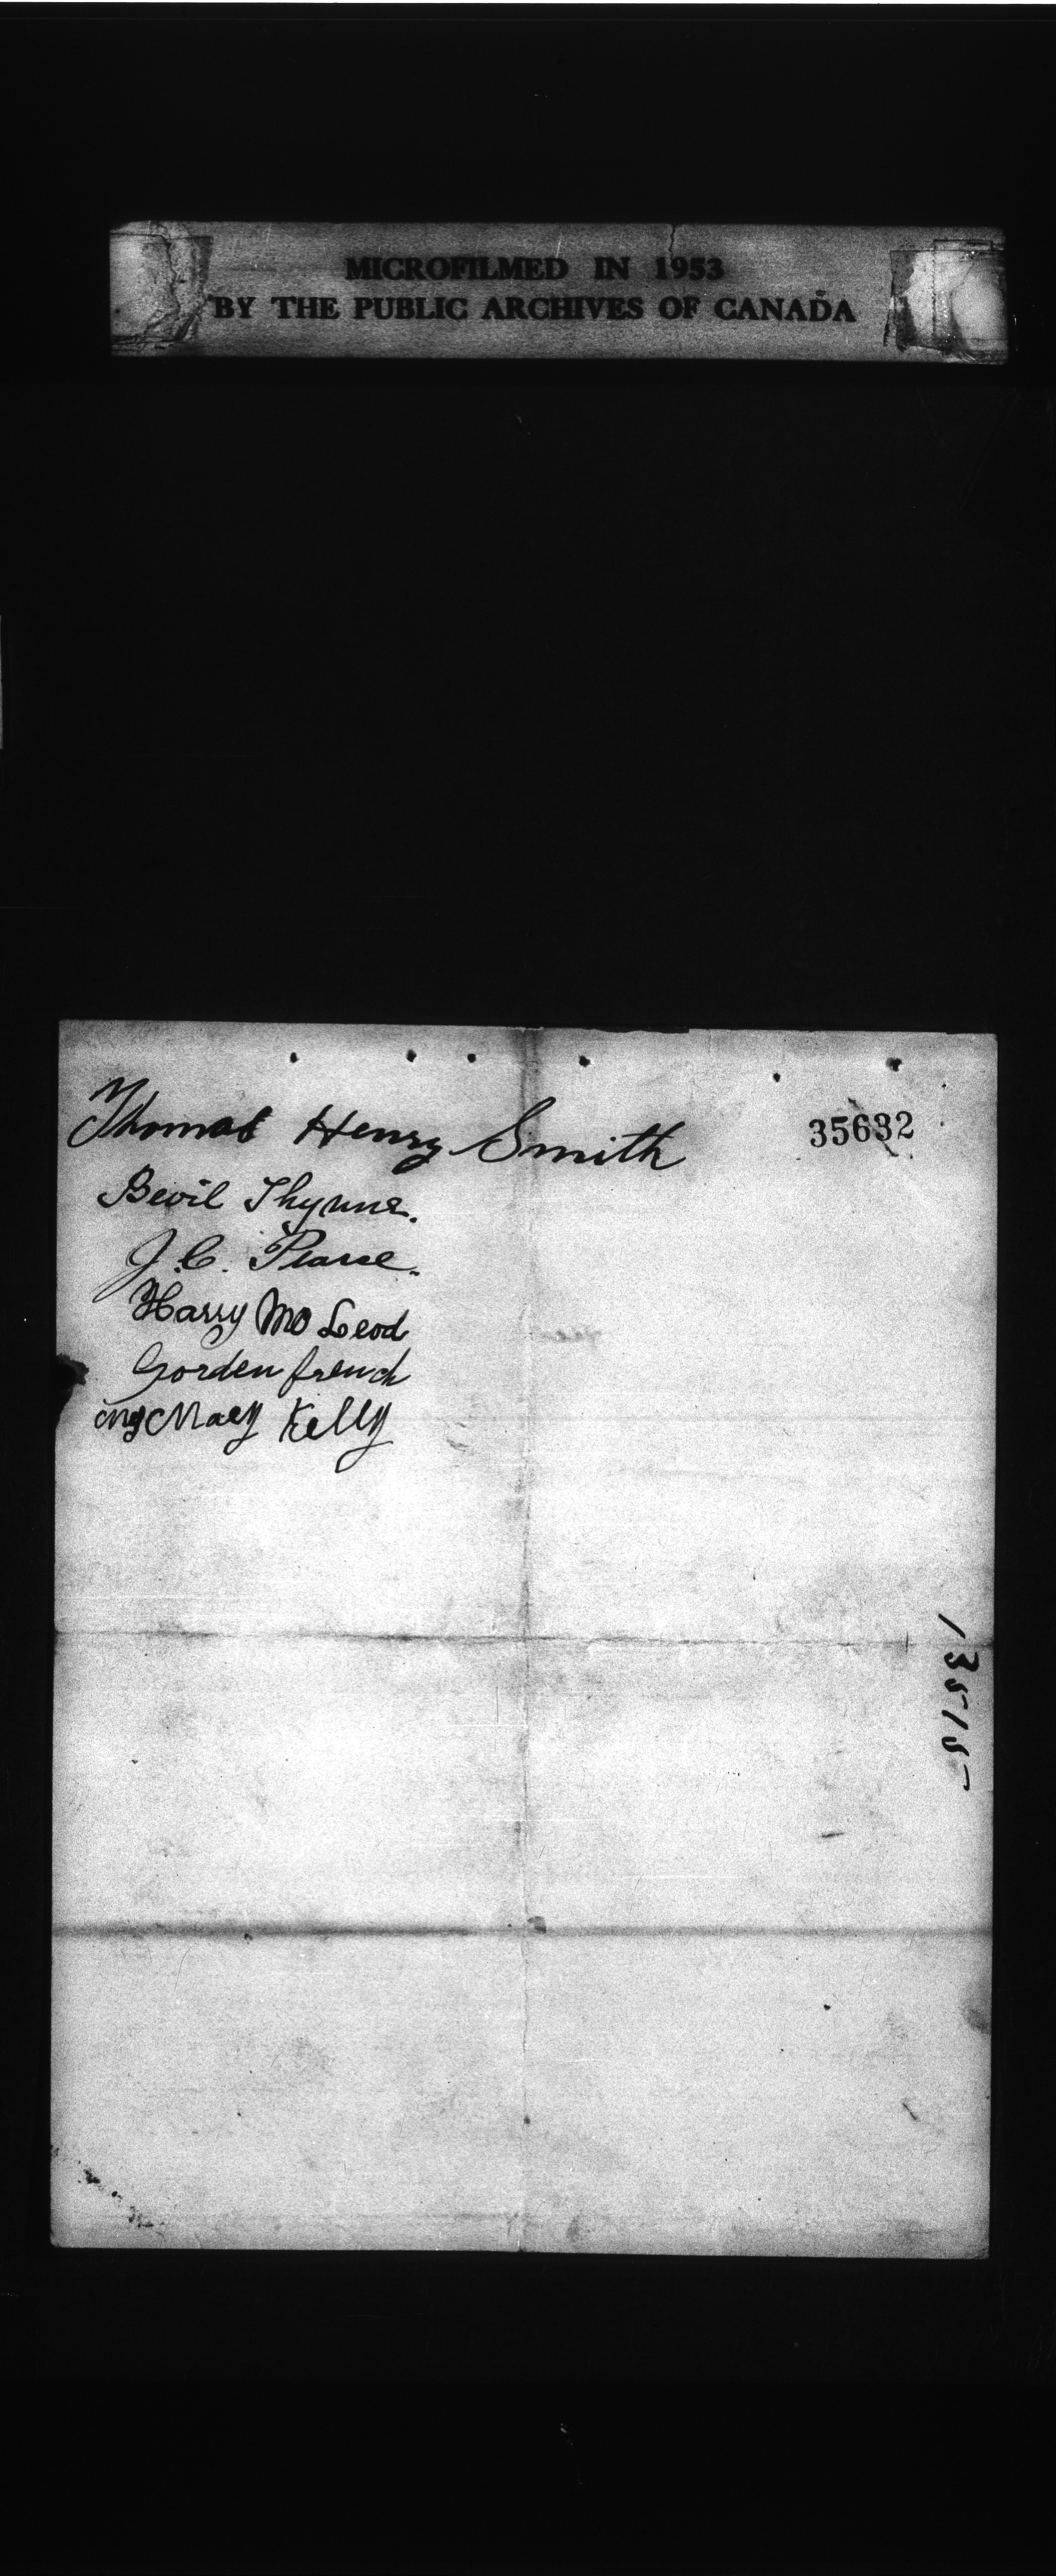 MICROFILMED IN 1953
BY THE PUBLIC ARCHIVES OF CANADA
Thomas Henry Smith
35632
Bevil Thynne.
J. C. Pearse.
Harry Mc Leod
Gorden french
Mary Kelly